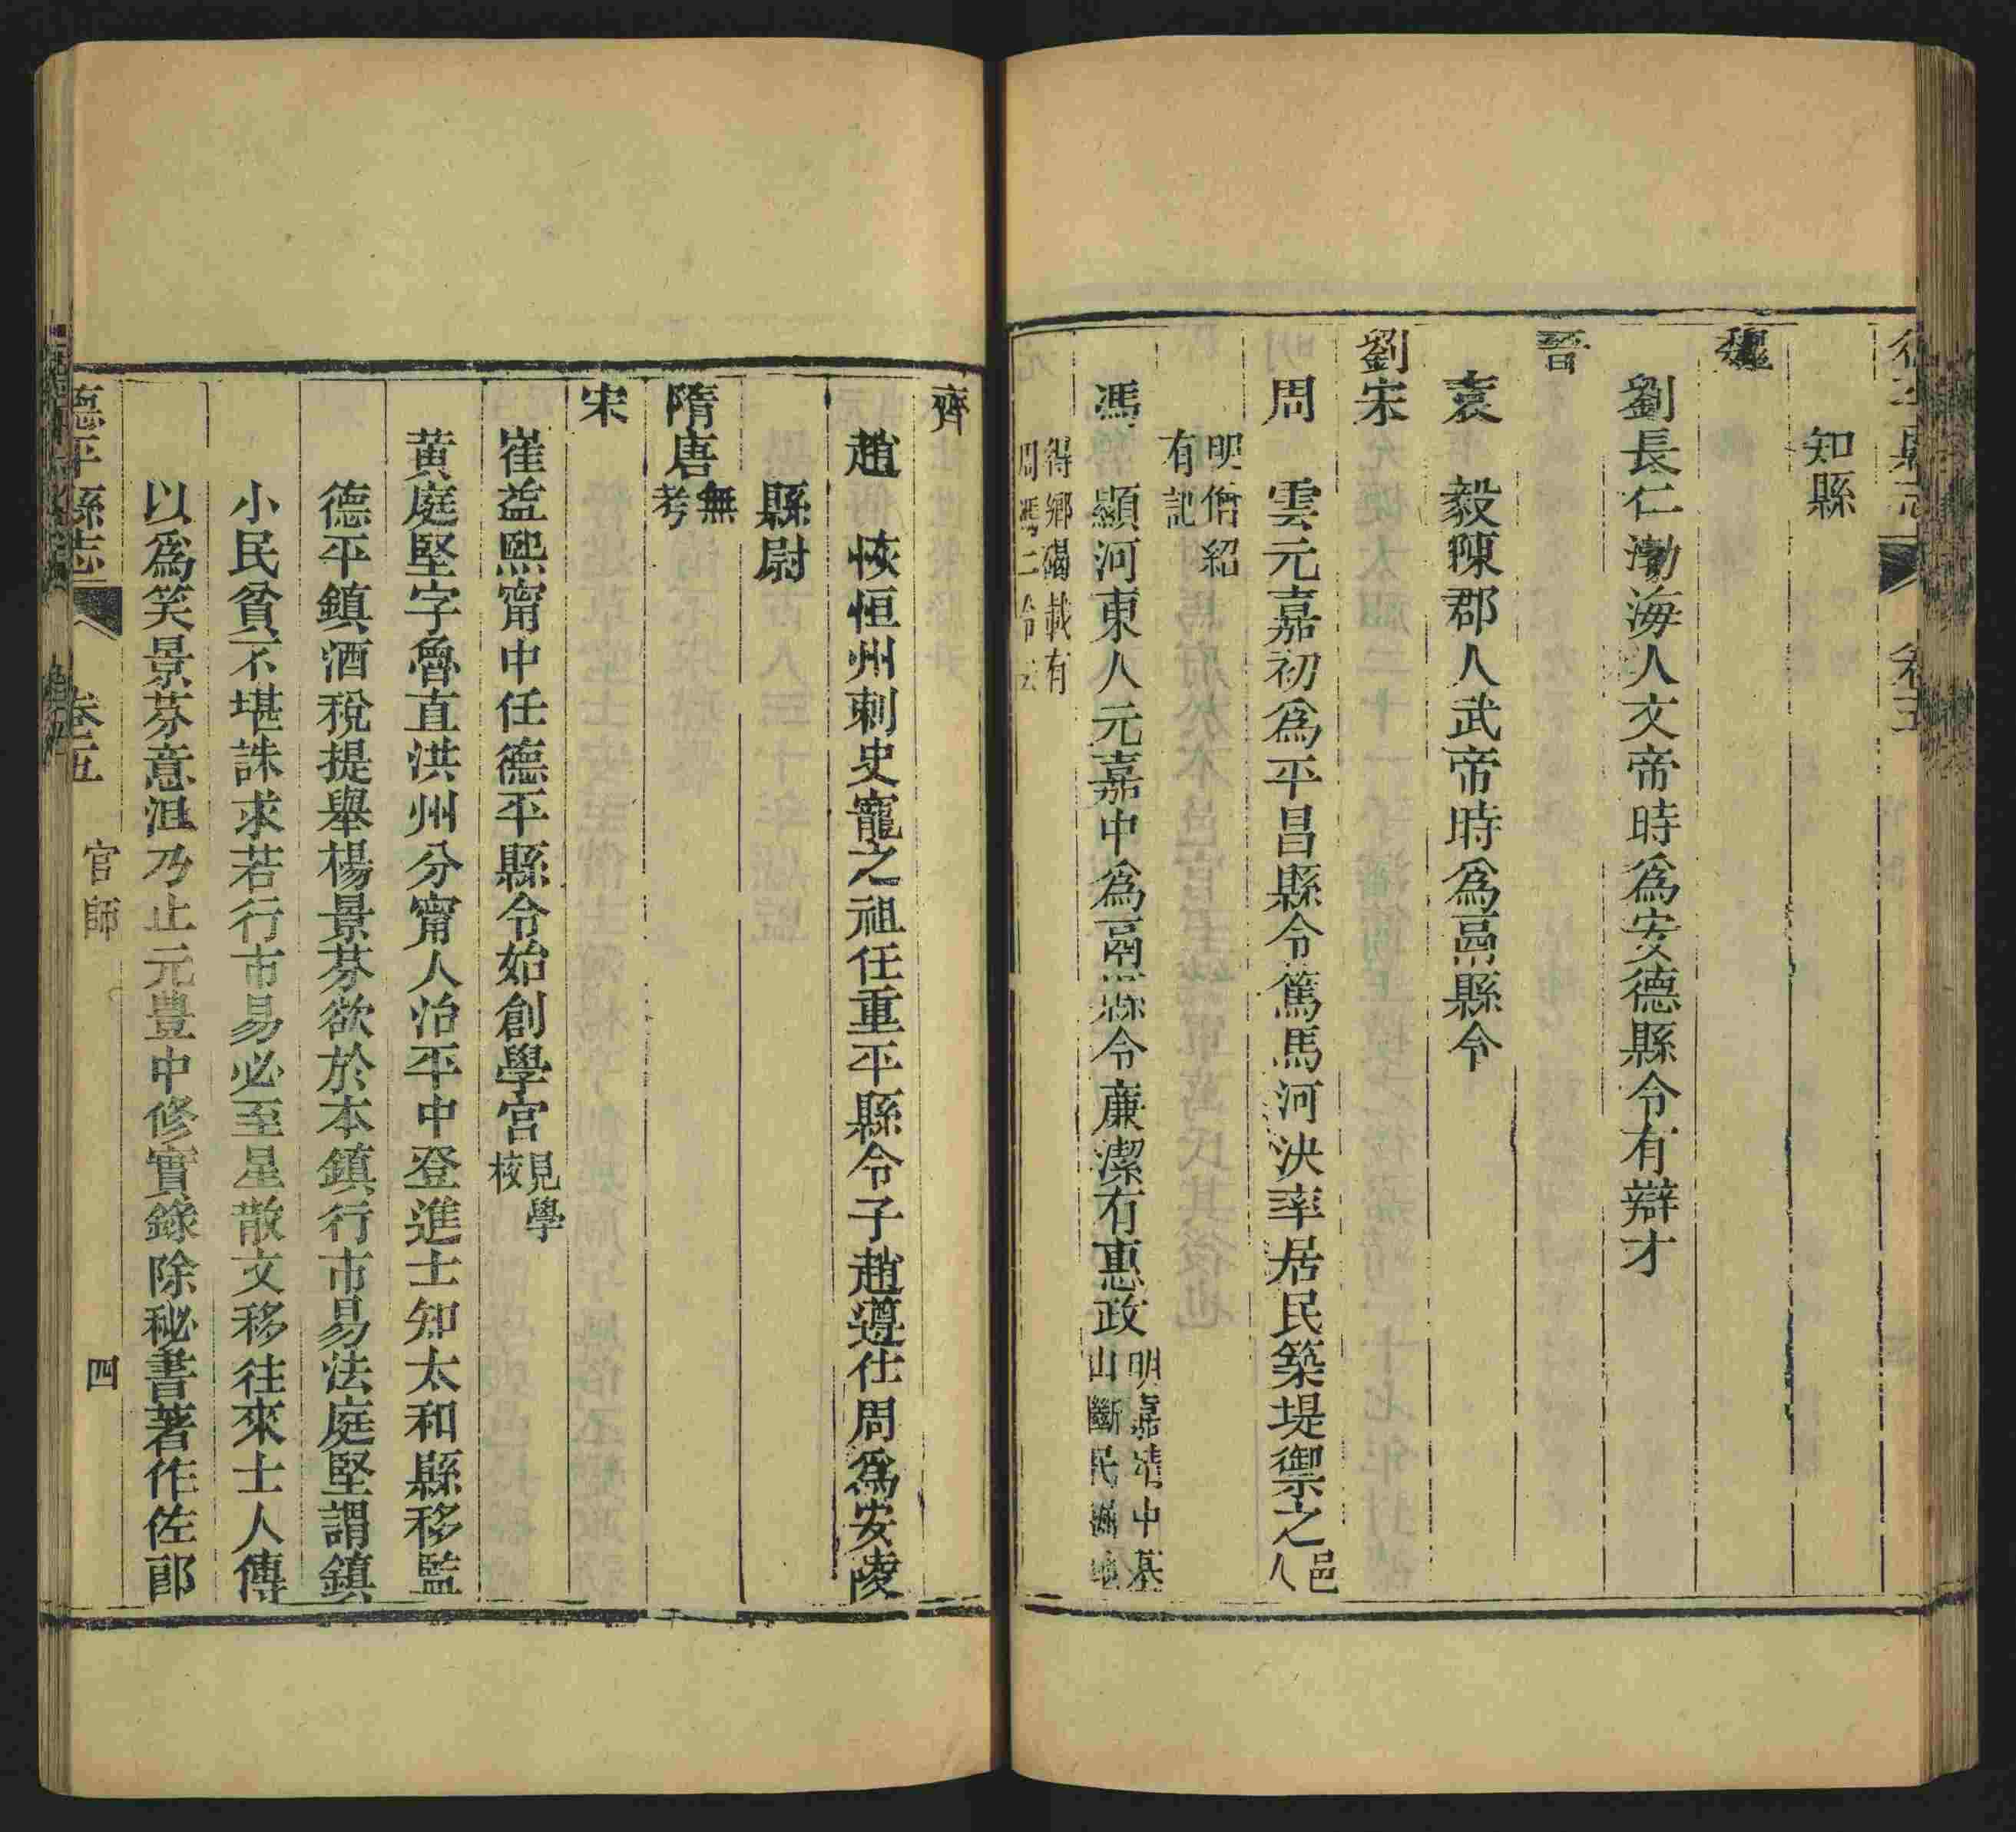 知縣
魏
劉長仁渤海人文帝時為安德縣令有辯才
晉
袁　毅陳郡人武帝時為鬲縣令
劉宋
周　雲元嘉初為平昌縣令篤馬河決率居民築堤禦之邑
人
明僧紹
有記
馮　顯河東人元嘉中為鬲縣令廉潔有惠政明嘉靖中基
山斷民
得鄉碣載有
周馮二
齊
趙　恢恒州刺史寵之祖任重平縣令子趙遵仕周為安陵
縣尉
隋唐無
考
宋
崔益熙甯中任德平縣令始創學宮見學
校
黃庭堅字魯直洪州分甯人治平中登進士知太和縣移監
德平鎮酒稅提舉楊景芬欲於本鎮行市易法庭堅謂鎮
小民貧不堪誅求若行市易必至星散文移往來士人傳
以為笑景芬意沮乃止元豊中修實錄除秘書著作佐郎
德平縣志　卷五　官師　四